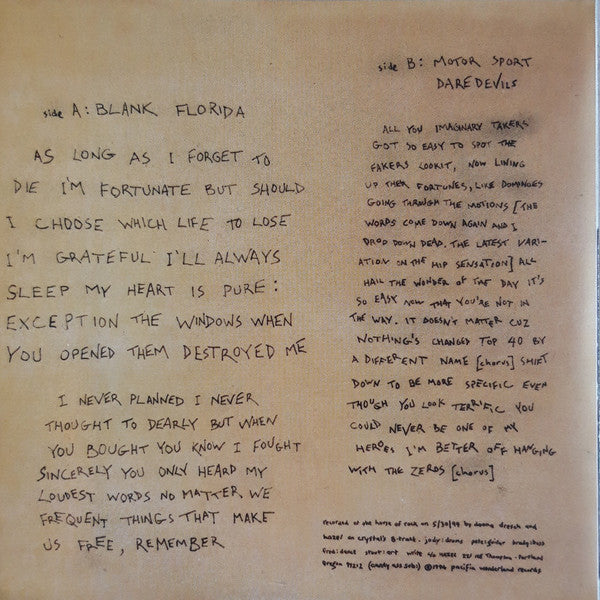 side A: BLANK FLORIDA
AS LONG AS I FORGET TO
DIE I'M FORTUNATE BUT SHOULD
I CHOOSE WHICH LIFE TO LOSE
I'M GRATEFUL I'LL ALWAYS
SLEEP MY HEART IS PURE:
EXCEPTION THE WINDOWS WHEN
YOU OPENED THEM DESTROYED ME
I NEVER PLANNED I NEVER
THOUGHT TO DEARLY BUT WHEN
YOU BOUGHT YOU KNOW I FOUGHT
SINCERELY YOU ONLY HEARD MY
LOUDEST WORDS NO MATTER WE
FREQUENT THINGS THAT MAKE
US FREE, REMEMBER
side B: MOTOR SPORT
DAREDEVILS
ALL YOU IMAGINARY TAKERS
GOT SO EASY TO SPOT THE
FAKERS LOOKIT, NOW LINING
UP THEIR FORTUNES, LIKE DOMINOES
GOING THROUGH THE MOTIONS [THE
WORDS COME DOWN AGAIN AND I
DROP DOWN DEAD. THE LATEST VARI-
ATION ON THE HIP SENSATION] ALL
HAIL THE WONDER OF THE DAY IT'S
SO EASY NOW THAT YOU'RE NOT IN
THE WAY. IT DOESN'T MATTER CUZ
NOTHING'S CHANGED TOP 40 BY
A DIFFERENT NAME [chorus] SHIFT
DOWN TO BE MORE SPECIFIC EVEN
THOUGH YOU LOOK TERRIFIC YOU
COULD NEVER BE ONE OF MY
HEROES I'M BETTER OFF HANGING
WITH THE ZEROS [chorus]
recorded at the horse of rock on 5/30/94 by donna dresch and
hazel on crystal's 8-track. jody:drums pete:guitar brady:bass
fred:dance start:art write c/o HAZEL SE Thompson. Portland
Oregon 97212 (candy ass subs) ©1994 pacifin wonderland records